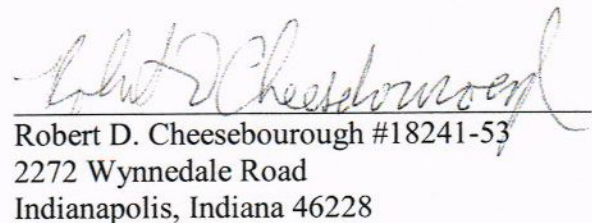 Robert D Cheesebourough
Robert D. Cheesebourough #18241-53
2272 Wynnedale Road
Indianapolis, Indiana 46228